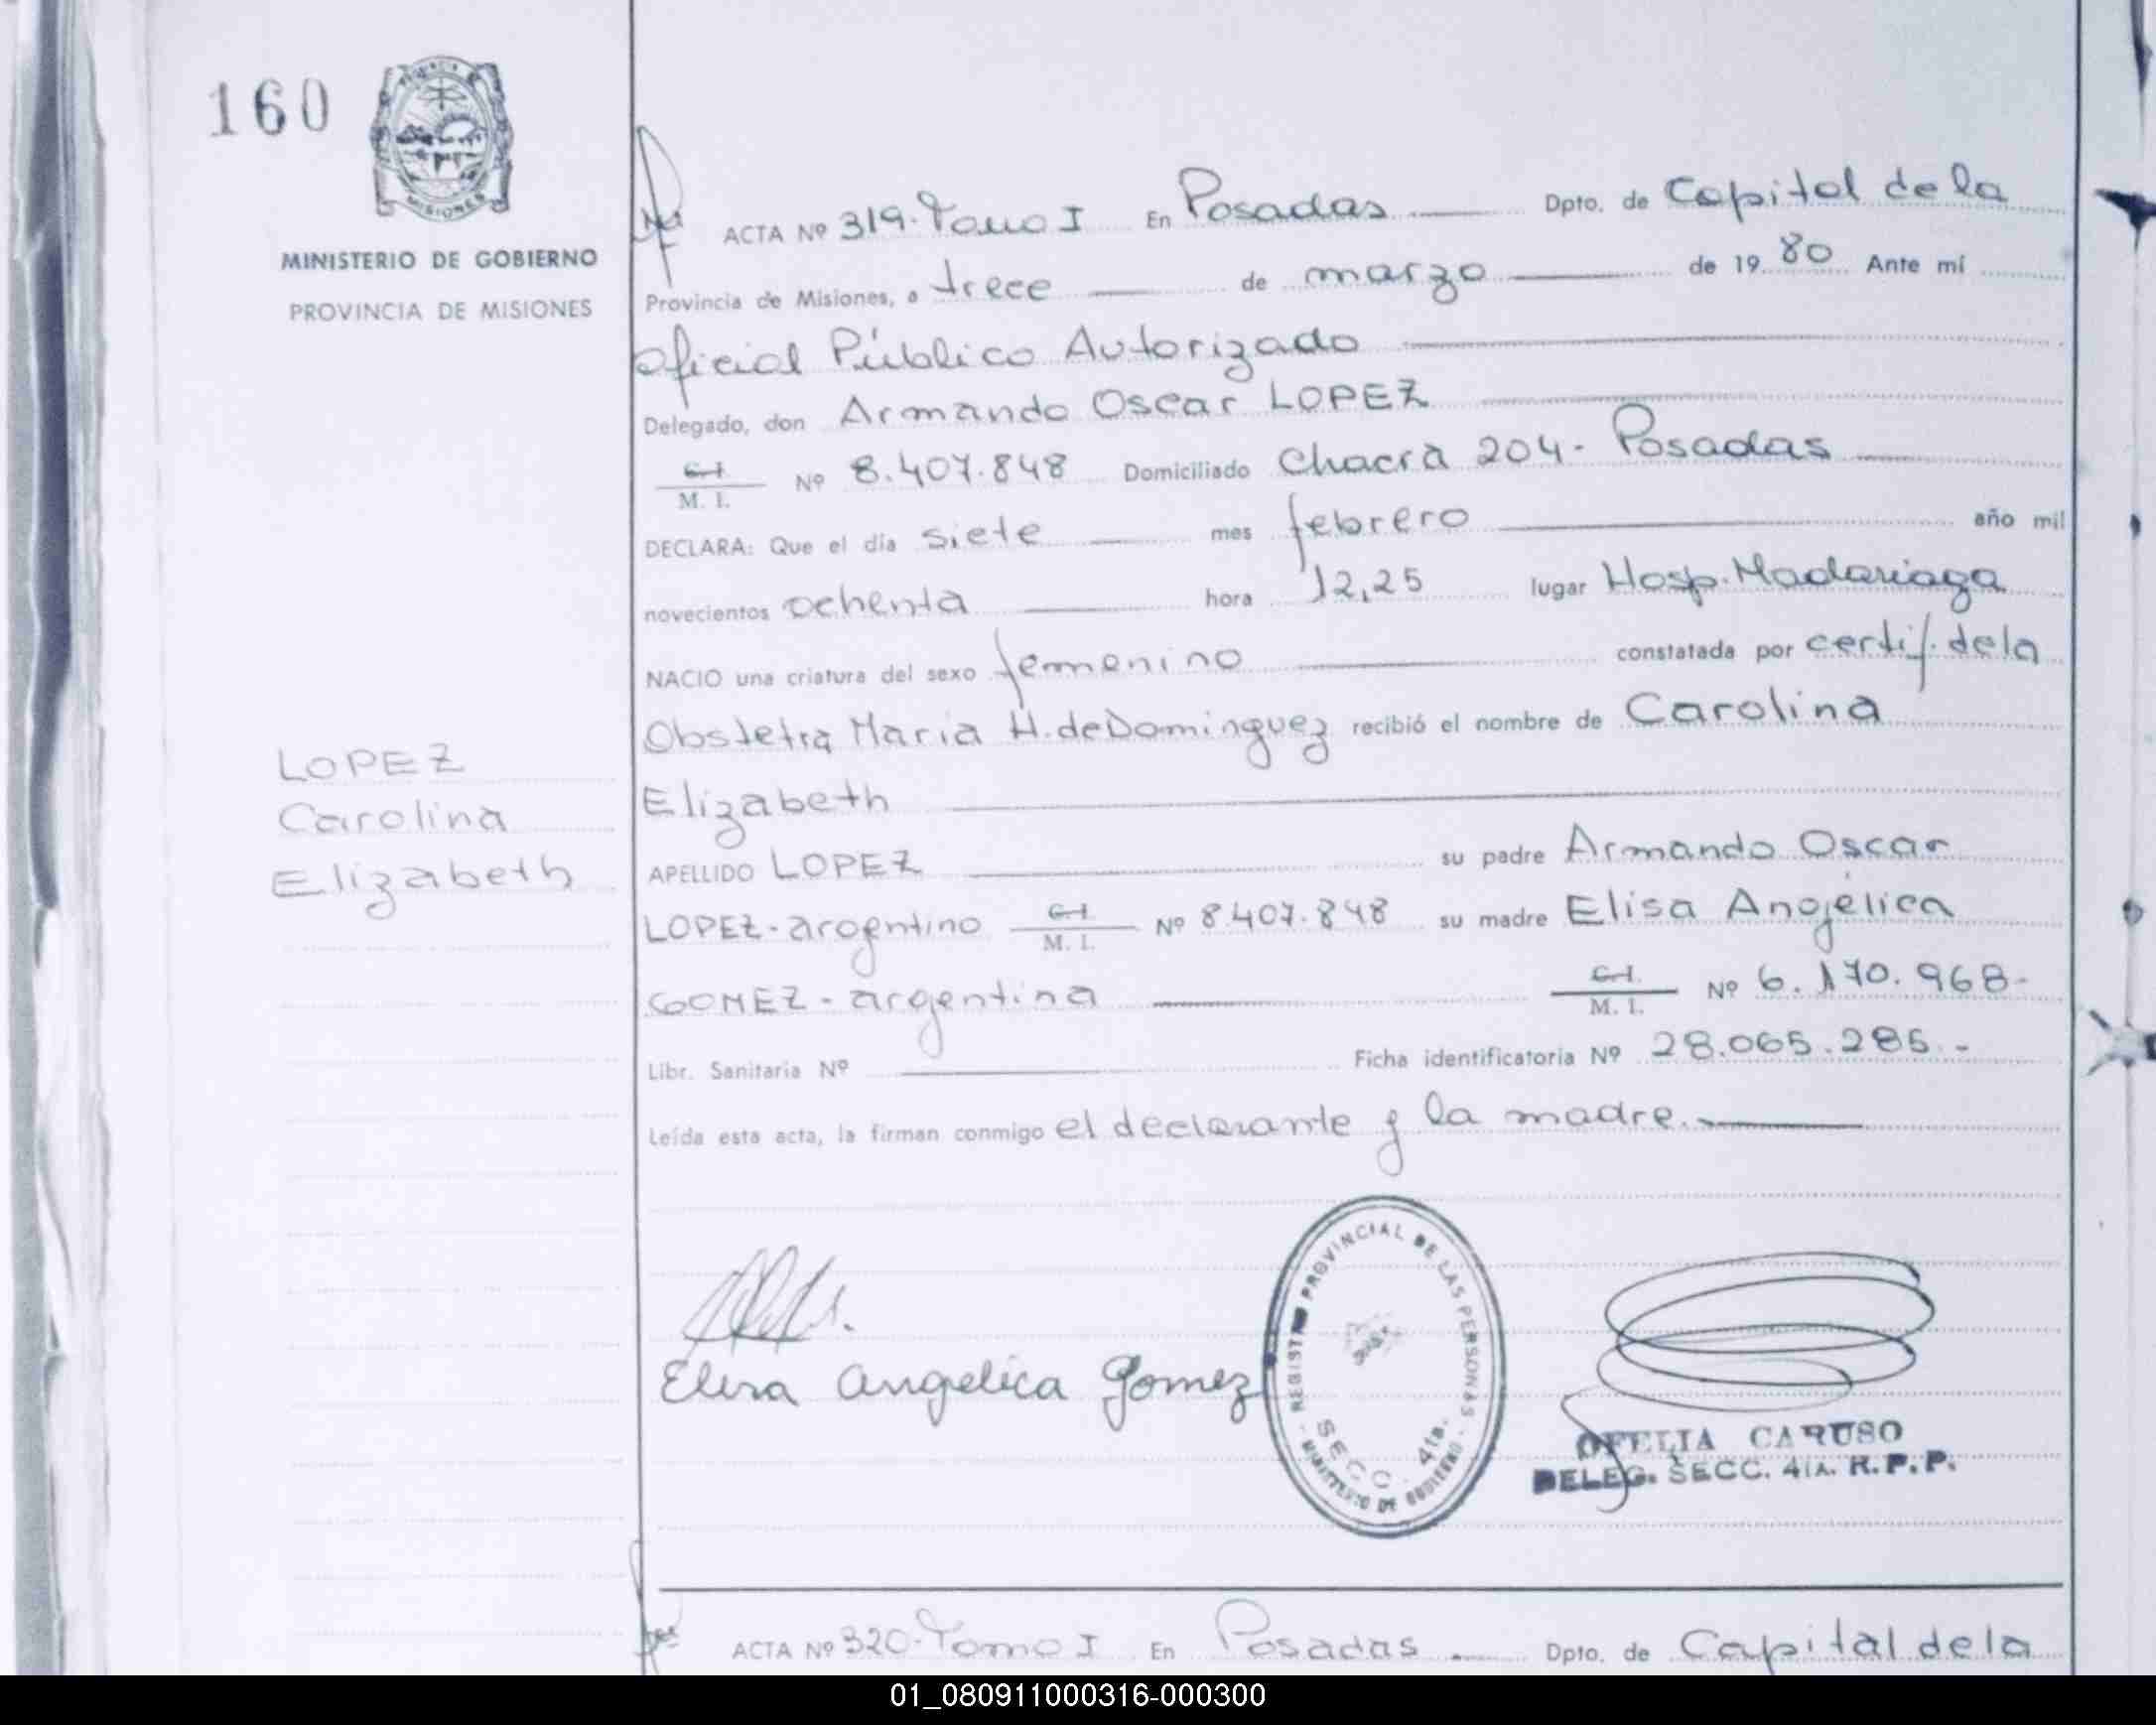 160
PROVINCIA DE
MISIONES
MINISTERIO DE GOBIERNO
PROVINCIA DE MISIONES
LOPEZ
Carolina
Elizabeth
ACTA Nº 319. Tomo I En Posadas Dpto. de Capital de la
Provincia de Misiones, a trece de marzo de 19 80 Ante mí
Oficial Público Autorizado
Delegado, don Armando Oscar LOPEZ
C.I. / M. I. Nº 8.407.848 Domiciliado Chacra 204 - Posadas
DECLARA: Que el día siete mes febrero año mil
novecientos ochenta hora 12,25 lugar Hosp. Madariaga
NACIO una criatura del sexo femenino constatada por certif. de la
Obstetra Maria H. de Dominguez recibió el nombre de Carolina
Elizabeth
APELLIDO LOPEZ su padre Armando Oscar
LOPEZ - argentino C.I. / M. I. Nº 8.407.848 su madre Elisa Angélica
GOMEZ - argentina C.I. / M. I. Nº 6.170.968-
Libr. Sanitaria Nº Ficha identificatoria Nº 28.065.285.-
Leída esta acta, la firman conmigo el declarante y la madre.
Elisa Angelica Gomez
REGISTRO PROVINCIAL DE LAS PERSONAS
SECC. 4ta.
MINISTERIO DE GOBIERNO
OFELIA CARUSO
DELEG. SECC. 4TA. R.P.P.
ACTA Nº 320 - Tomo I En Posadas Dpto. de Capital de la
01_080911000316-000300